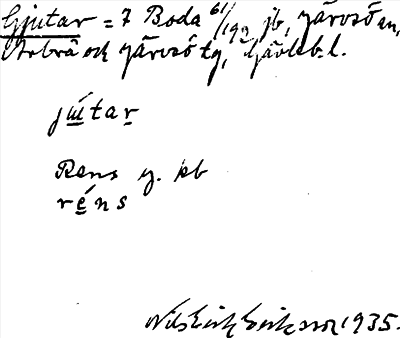 Gjutar = 7 Boda 61/192 jb, Järvsö sn,
Arbrå och Järvsö tg, Gävleb. l.
jútar
Rens y. kb
réns
Nils Erik Eriksson 1935.